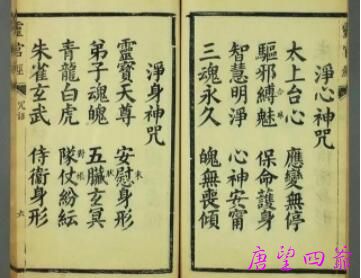 淨心神咒
太上台心　應變無停
驅邪縛魅　保命護身
智慧明淨　心神安甯
三魂永久　魄無喪傾
淨身神咒
靈寶天尊　安慰身形
弟子魂魄　五臟玄冥
青龍白虎　隊仗紛紜
朱雀玄武　侍衛身形
靈官經　咒語　六
唐望四爺